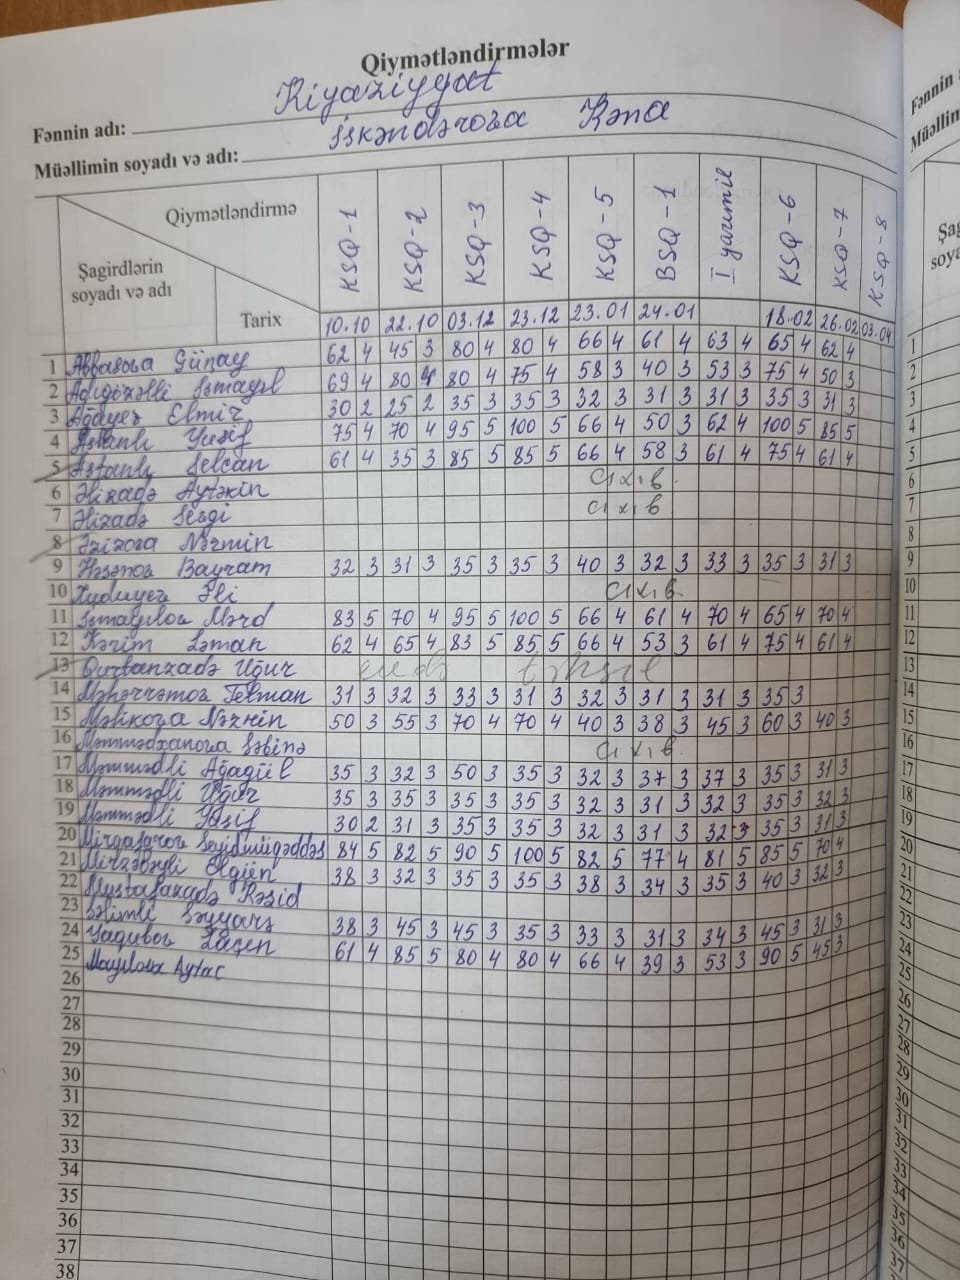 Qiymətləndirmələr
Fənnin adı: Riyaziyyat
Müəllimin soyadı və adı: İskəndərova Rəna
Qiymətləndirmə
Şagirdlərin soyadı və adı
Tarix
KSQ-1 KSQ-2 KSQ-3 KSQ-4 KSQ-5 BSQ-1 I yarımil KSQ-6 KSQ-7 KSQ-8
10.10 22.10 03.12 23.12 23.01 24.01 18.02 26.02 03.04
1 Abbasova Günay 62 4 45 3 80 4 80 4 66 4 61 4 63 4 65 4 62 4
2 Adıgözəlli İsmayıl 69 4 80 4 80 4 75 4 58 3 40 3 53 3 75 4 50 3
3 Ağayev Elmir 30 2 25 2 35 3 35 3 32 3 31 3 31 3 35 3 31 3
4 Aslanlı Yusif 75 4 70 4 95 5 100 5 66 4 50 3 62 4 100 5 85 5
5 Aslanlı Selcan 61 4 35 3 85 5 85 5 66 4 58 3 61 4 75 4 61 4
6 Əlizadə Aytəkin çıxıb
7 Əlizadə Sevgi çıxıb
8 Əzizova Nəzmin
9 Həsənov Bayram 32 3 31 3 35 3 35 3 40 3 32 3 33 3 35 3 31 3
10 Xuduyev Əli çıxıb
11 İsmayılov Mərd 83 5 70 4 95 5 100 5 66 4 61 4 70 4 65 4 70 4
12 Kərim Ləman 62 4 65 4 83 5 85 5 66 4 53 3 61 4 75 4 61 4
13 Qurbanzadə Uğur evdə təhsil
14 Məhərrəmov Telman 31 3 32 3 33 3 31 3 32 3 31 3 31 3 35 3
15 Məlikova Nəzrin 50 3 55 3 70 4 70 4 40 3 38 3 45 3 60 3 40 3
16 Məmmədxanova Səbinə çıxıb
17 Məmmədli Ağagül 35 3 32 3 50 3 35 3 32 3 37 3 37 3 35 3 31 3
18 Məmmədli Uğur 35 3 35 3 35 3 35 3 32 3 31 3 32 3 35 3 32 3
19 Məmmədli Yusif 30 2 31 3 35 3 35 3 32 3 31 3 32 3 35 3 31 3
20 Mirqafarov Seyidmüqəddəs 84 5 82 5 90 5 100 5 82 5 77 4 81 5 85 5 70 4
21 Mirzəbəyli Elgün 38 3 32 3 35 3 35 3 38 3 34 3 35 3 40 3 32 3
22 Mustafazadə Rəşid
23 Səlimli Səyyarə 38 3 45 3 45 3 35 3 33 3 31 3 34 3 45 3 31 3
24 Yaqubov Laçın 61 4 85 5 80 4 80 4 66 4 39 3 53 3 90 5 45 3
25 Aytac
26
27
28
29
30
31
32
33
34
35
36
37
38